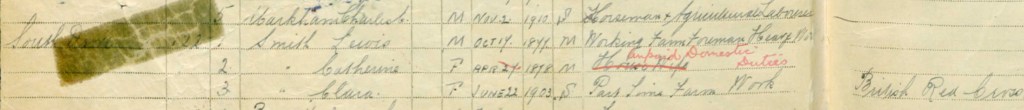 5 Markham Charles M Nov 2 1910 S Horseman & Agricultural Labourer
South 1 Smith Lewis M OCT 14 M Working Farm Foreman Heavy
Unpaid Domestic Duties
2 " Catherine F APR 24 1878 M House Wife
3 " Clara F JUNE 22 1903 S Part Time Farm Work British Red Cross